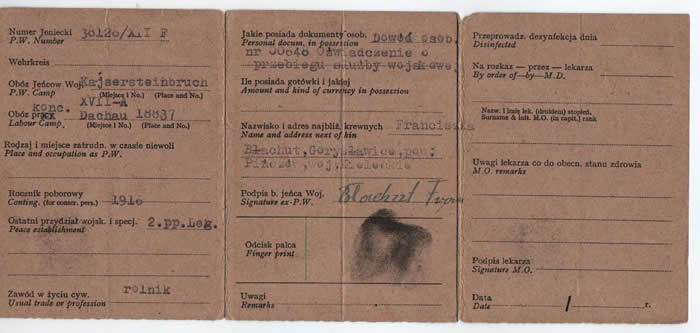 Numer Jeniecki 38126/XVII F
P.W. Number
Wehrkreis
Obóz Jeńcow Woj. Kajsersteinbruch
P.W. Camp (Miejsce i No.) (Place and No.)
XVII-A
konc.
Obóz pracy Dachau 18837
Labour Camp. (Miejsce i No.) (Place and No.)
Rodzaj i miejsce zatrudn. w czasie niewoli
Place and occupation as P.W.
Rocznik poborowy
Conting. (for conscr. pers.) 1916
Ostatni przydział wojsk. i specj. 2.pp.Leg.
Peace establishment
Zawód w życiu cyw. rolnik
Usual trade or profession
Jakie posiada dokumenty osob. Dowód osob.
Personal docum. in possession
nr 00848 Oświadczenie o
przebiegu służby wojskowe,
Ile posiada gotówki i jakiej
Amount and kind of currency in possession
Nazwisko i adres najbliż. krewnych Franciszka
Name and address next of kin
Błachut, Gorysławice, pow.
Pińczów, woj. Kieleckie
Podpis b. jeńca Woj. Blachut
Signature ex-P.W.
Odcisk palca
Finger print
Uwagi
Remarks
Przeprowadz. dezynfekcja dnia
Disinfected
Na rozkaz — przez — lekarza
By order of—by—M.D.
Nazw. i imię lek. (drukiem) stopień.
Surname & init. M.O. (in capit.) rank
Uwagi lekarza co do obecn. stanu zdrowia
M.O. remarks
Podpis lekarza
Signature M.O.
Data
Date / r.